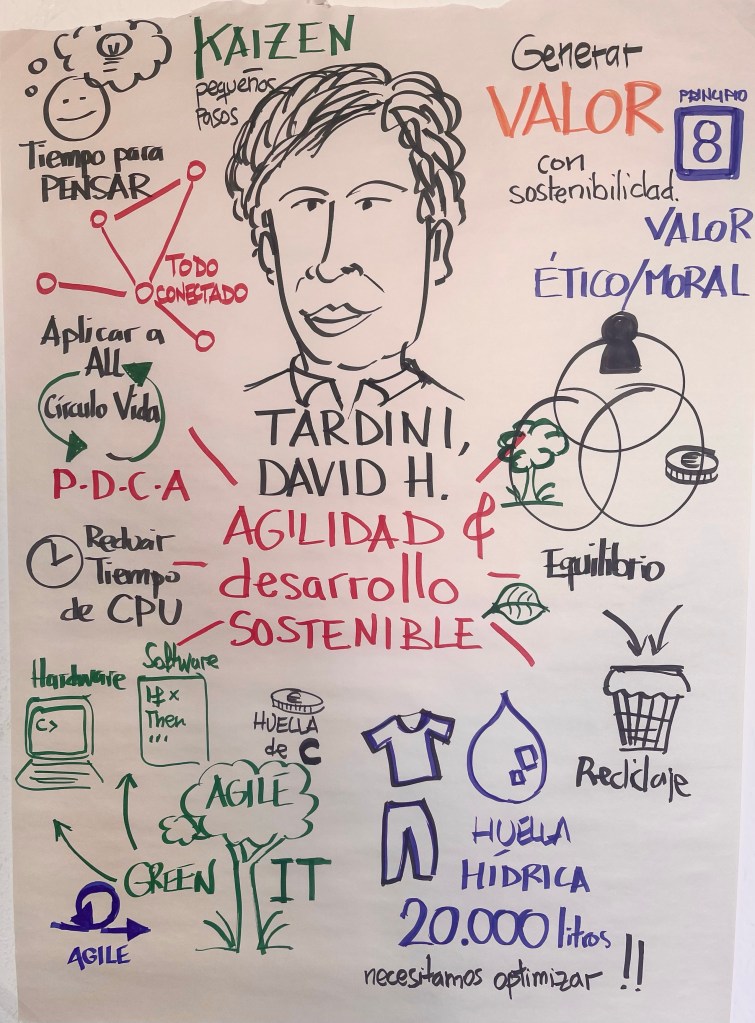 KAIZEN
pequeños
pasos
Tiempo para
PENSAR
TODO
CONECTADO
Generar
VALOR
con
sostenibilidad.
PRINCIPIO
8
VALOR
ÉTICO/MORAL
Aplicar a
ALL
Círculo Vida
P-D-C-A
TARDINI,
DAVID H.
AGILIDAD &
desarrollo
SOSTENIBLE
Equilibrio
Reducir
Tiempo
de CPU
Hardware
C>
Software
If x
Then
...
HUELLA
de C
AGILE
GREEN IT
AGILE
Reciclaje
HUELLA
HÍDRICA
20.000 litros
necesitamos optimizar !!